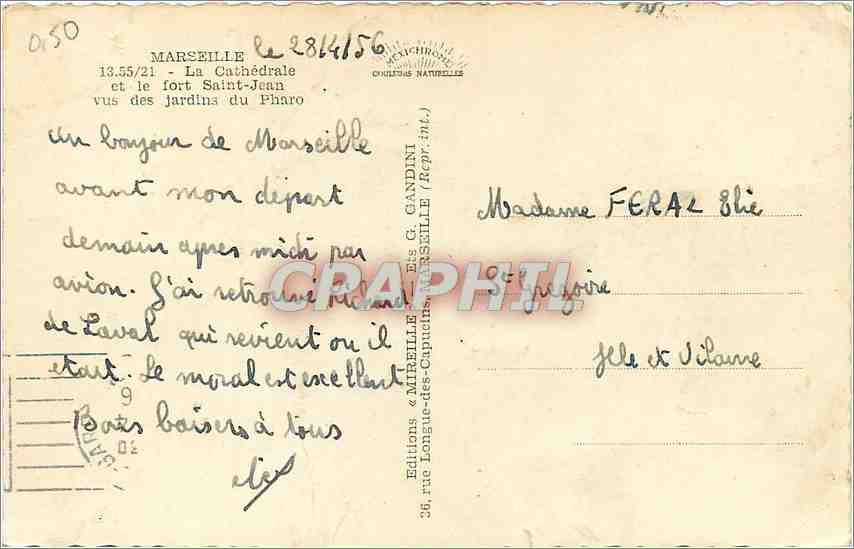 0,50
MARSEILLE le 28/4/56
13.55/21 - La Cathédrale
et le fort Saint-Jean
vus des jardins du Pharo
MEXICHROME
COULEURS NATURELLES
Un bonjour de Marseille
avant mon départ
demain apres midi par
avion. J'ai retrouvé Richard
de Laval qui revient ou il
etait. Le moral est excellent
Bons baisers à tous
Editions « MIREILLE » Ets G. GANDINI
36, rue Longue-des-Capucins, MARSEILLE (Repr. int.)
CPAPHIL
Madame FERAL Elie
St Gregoire
Ille et Vilaine
GAR
30